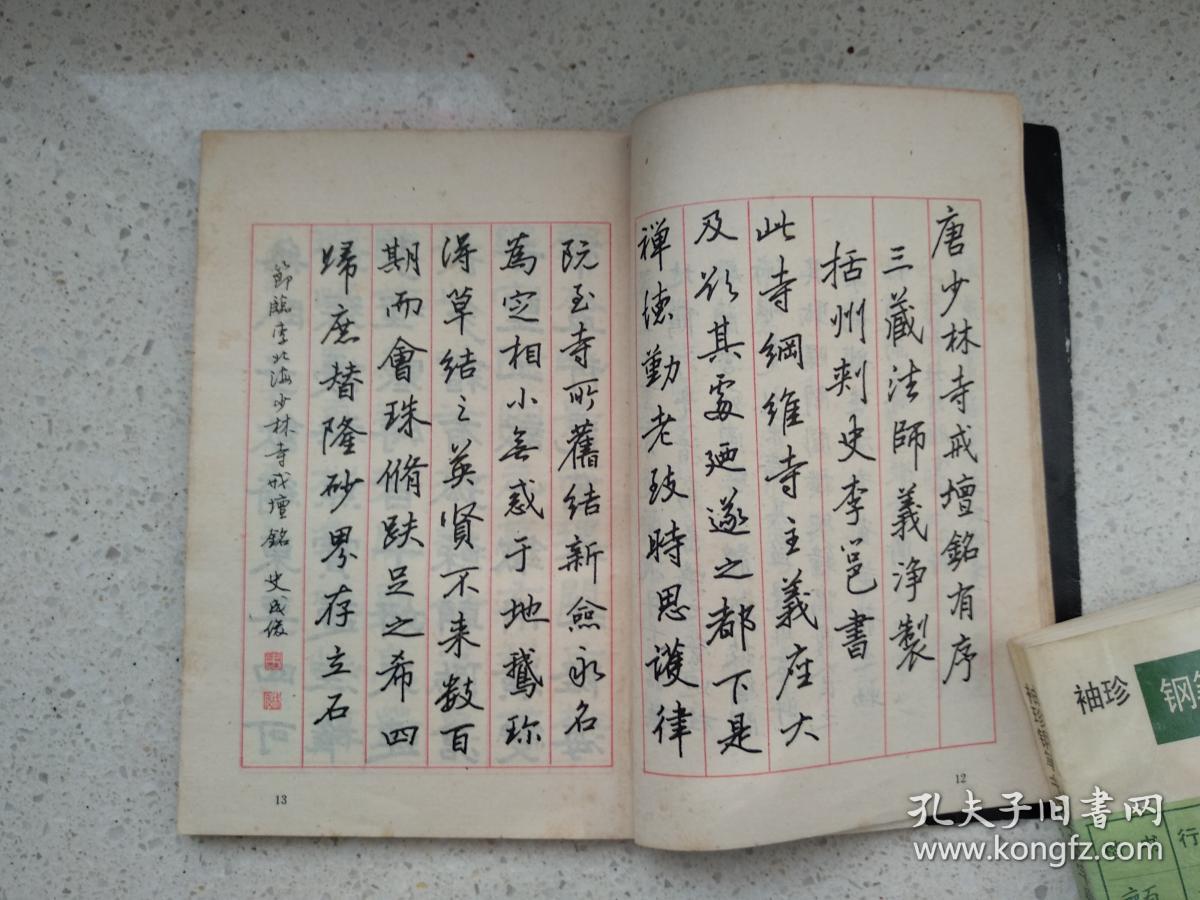 唐少林寺戒壇銘有序
三藏法師義浄製
括州刺史李邕書
此寺綱維寺主義座大
及以其處迺遂之都下是
禅德勤老致時思護律
12
阮至寺所舊結新僉永名
為定相小無惑于地鵝珎
得草結之英賢不来数百
期而會珠脩跌足之希四
歸庶替隆砂界存立石
節臨李北海少林寺戒壇銘 史成俊
13
袖珍
钢
行
孔夫子旧书网
www.kongfz.com